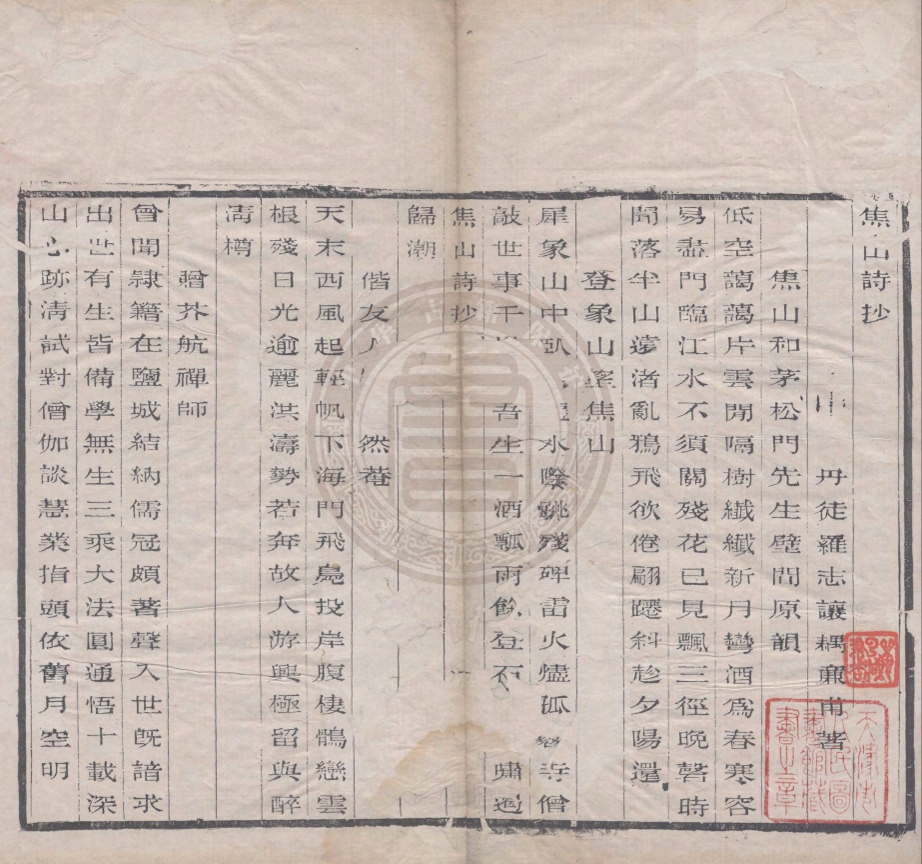 焦山詩抄
丹徒羅志讓耦甫著
焦山和茅松門先生壁間原韻
低空藹藹片雲閒隔樹纖纖新月彎酒爲春寒容
易盡門臨江水不須關殘花已見飄三徑晚磬時
聞落半山遠渚亂鴉飛欲倦翩躚斜趁夕陽還
登象山望焦山
犀象山中臥水際跳殘碑雷火燼孤寺僧
敲世事千吾生一酒瓢雨餘登石嘯過
焦山詩抄
歸潮
偕友人然菴
天末西風起輕帆下海門飛鳧投岸腹棲鶻戀雲
根殘日光逾麗洪濤勢若奔故人游興極留與醉
淸樽
贈芥航禪師
曾聞隷籍在鹽城結納儒冠頗著聲入世旣諳求
出世有生皆備學無生三乘大法圓通悟十載深
山心跡淸試對僧伽談慧業指頭依舊月空明